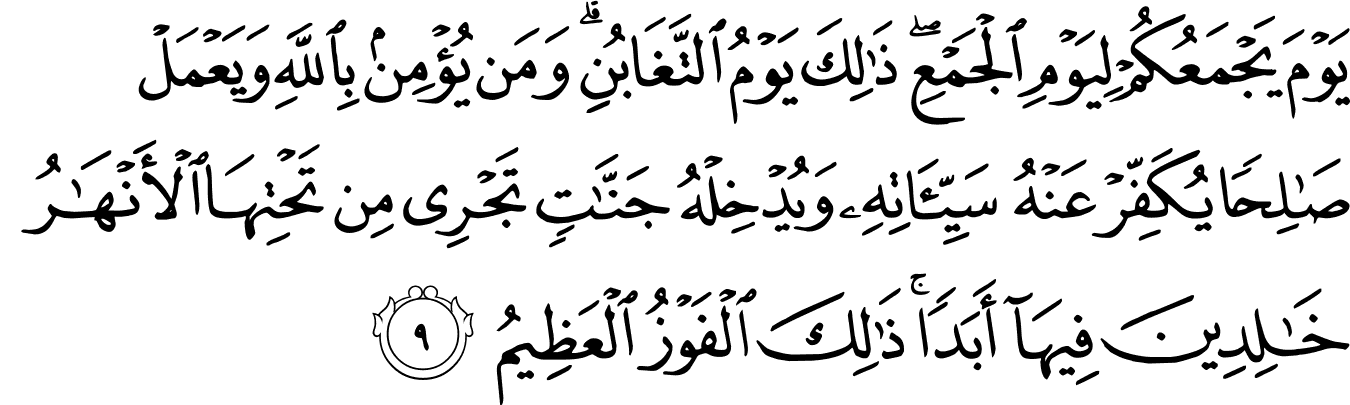 يَوْمَ يَجْمَعُكُمْ لِيَوْمِ ٱلْجَمْعِ ۖ ذَٰلِكَ يَوْمُ ٱلتَّغَابُنِ ۗ وَمَن يُؤْمِنۢ بِٱللَّهِ وَيَعْمَلْ
صَـٰلِحًا يُكَفِّرْ عَنْهُ سَيِّـَٔاتِهِۦ وَيُدْخِلْهُ جَنَّـٰتٍ تَجْرِى مِن تَحْتِهَا ٱلْأَنْهَـٰرُ
خَـٰلِدِينَ فِيهَآ أَبَدًا ۚ ذَٰلِكَ ٱلْفَوْزُ ٱلْعَظِيمُ ٩